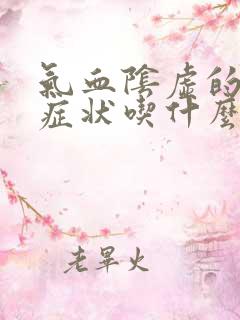 氣血陰虛的
症状喫什麼
老旱火